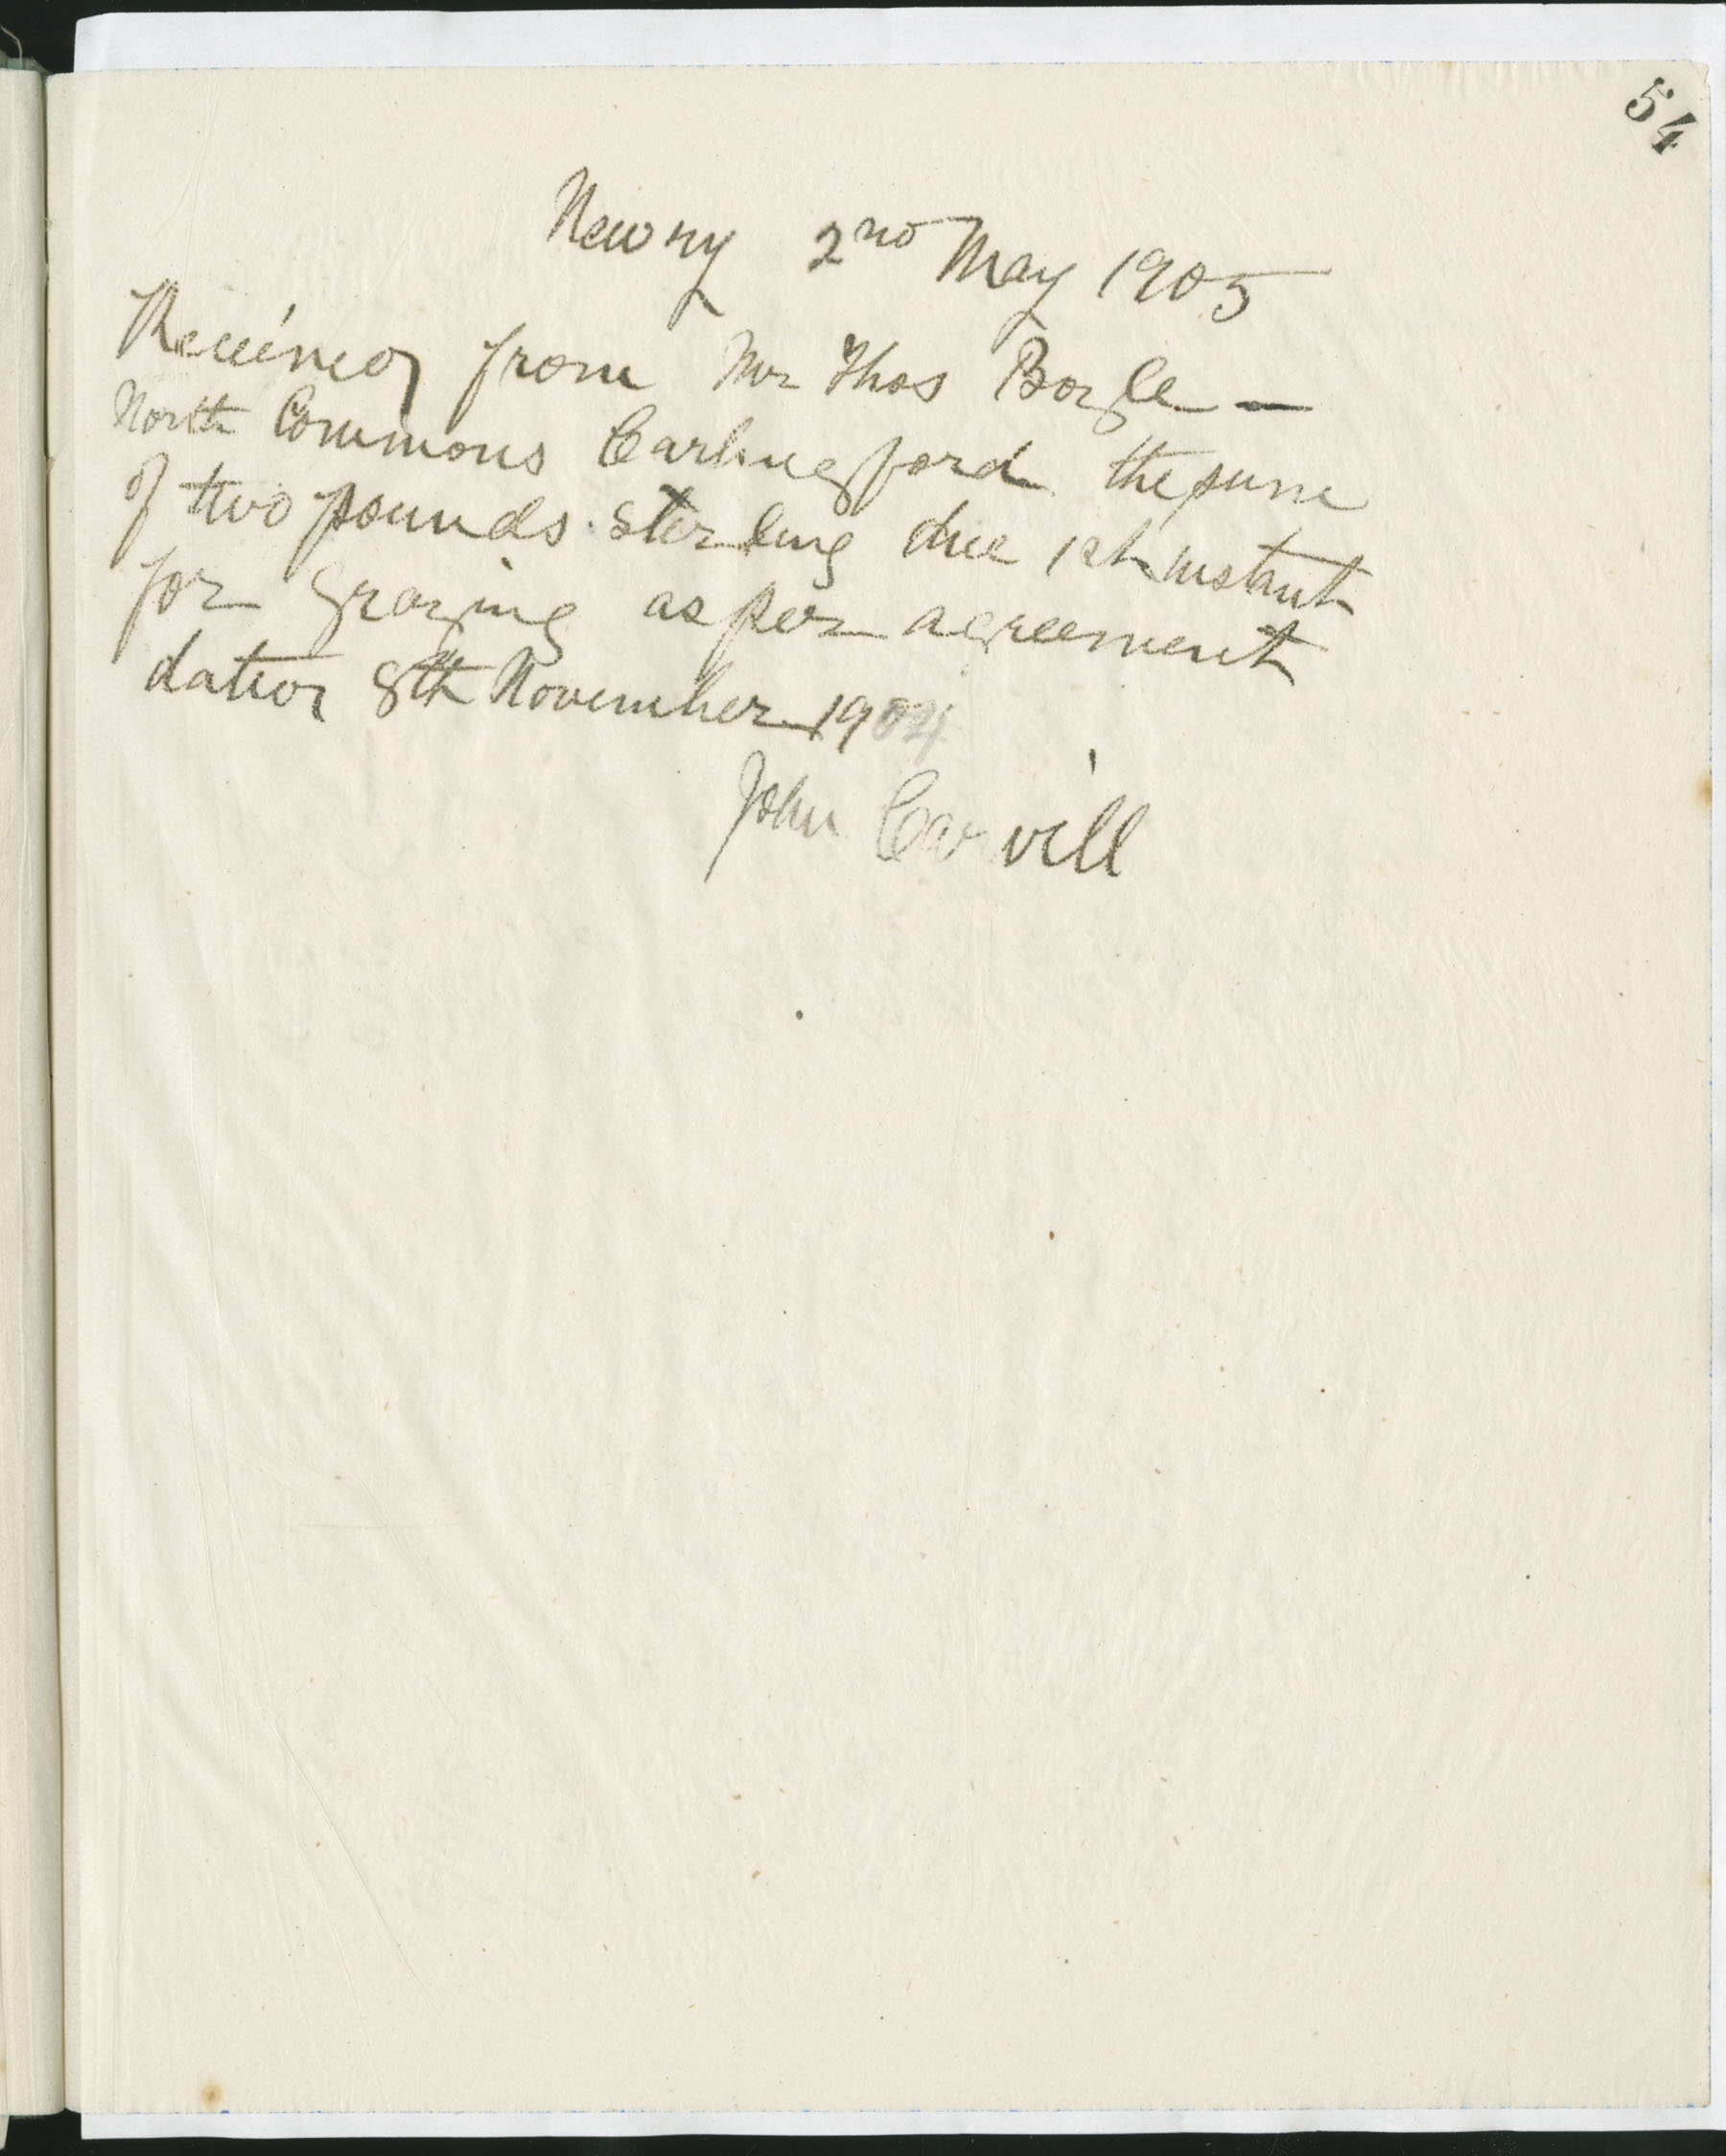 54
Newry 2nd May 1905
Received from Mr Thos Boyle —
North Commons Carlingford the sum
of two pounds sterling due 1st instant
for grazing as per agreement
dated 8th November 1904
John Carvill